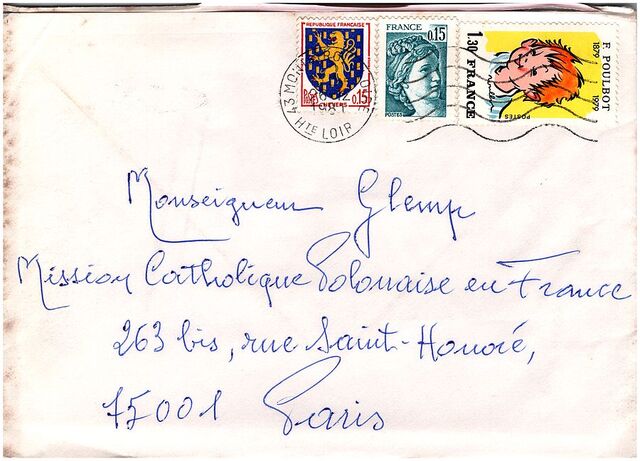 REPUBLIQUE FRANÇAISE
Postes 0.15
NEVERS
FRANCE
0,15
POSTES
F. POULBOT
1879 1979
1.30 FRANCE
POSTES
43 MON
HTE LOIR
Monseigneur Glemp
Mission Catholique Polonaise en France
263 bis, rue Saint-Honoré,
75001 Paris